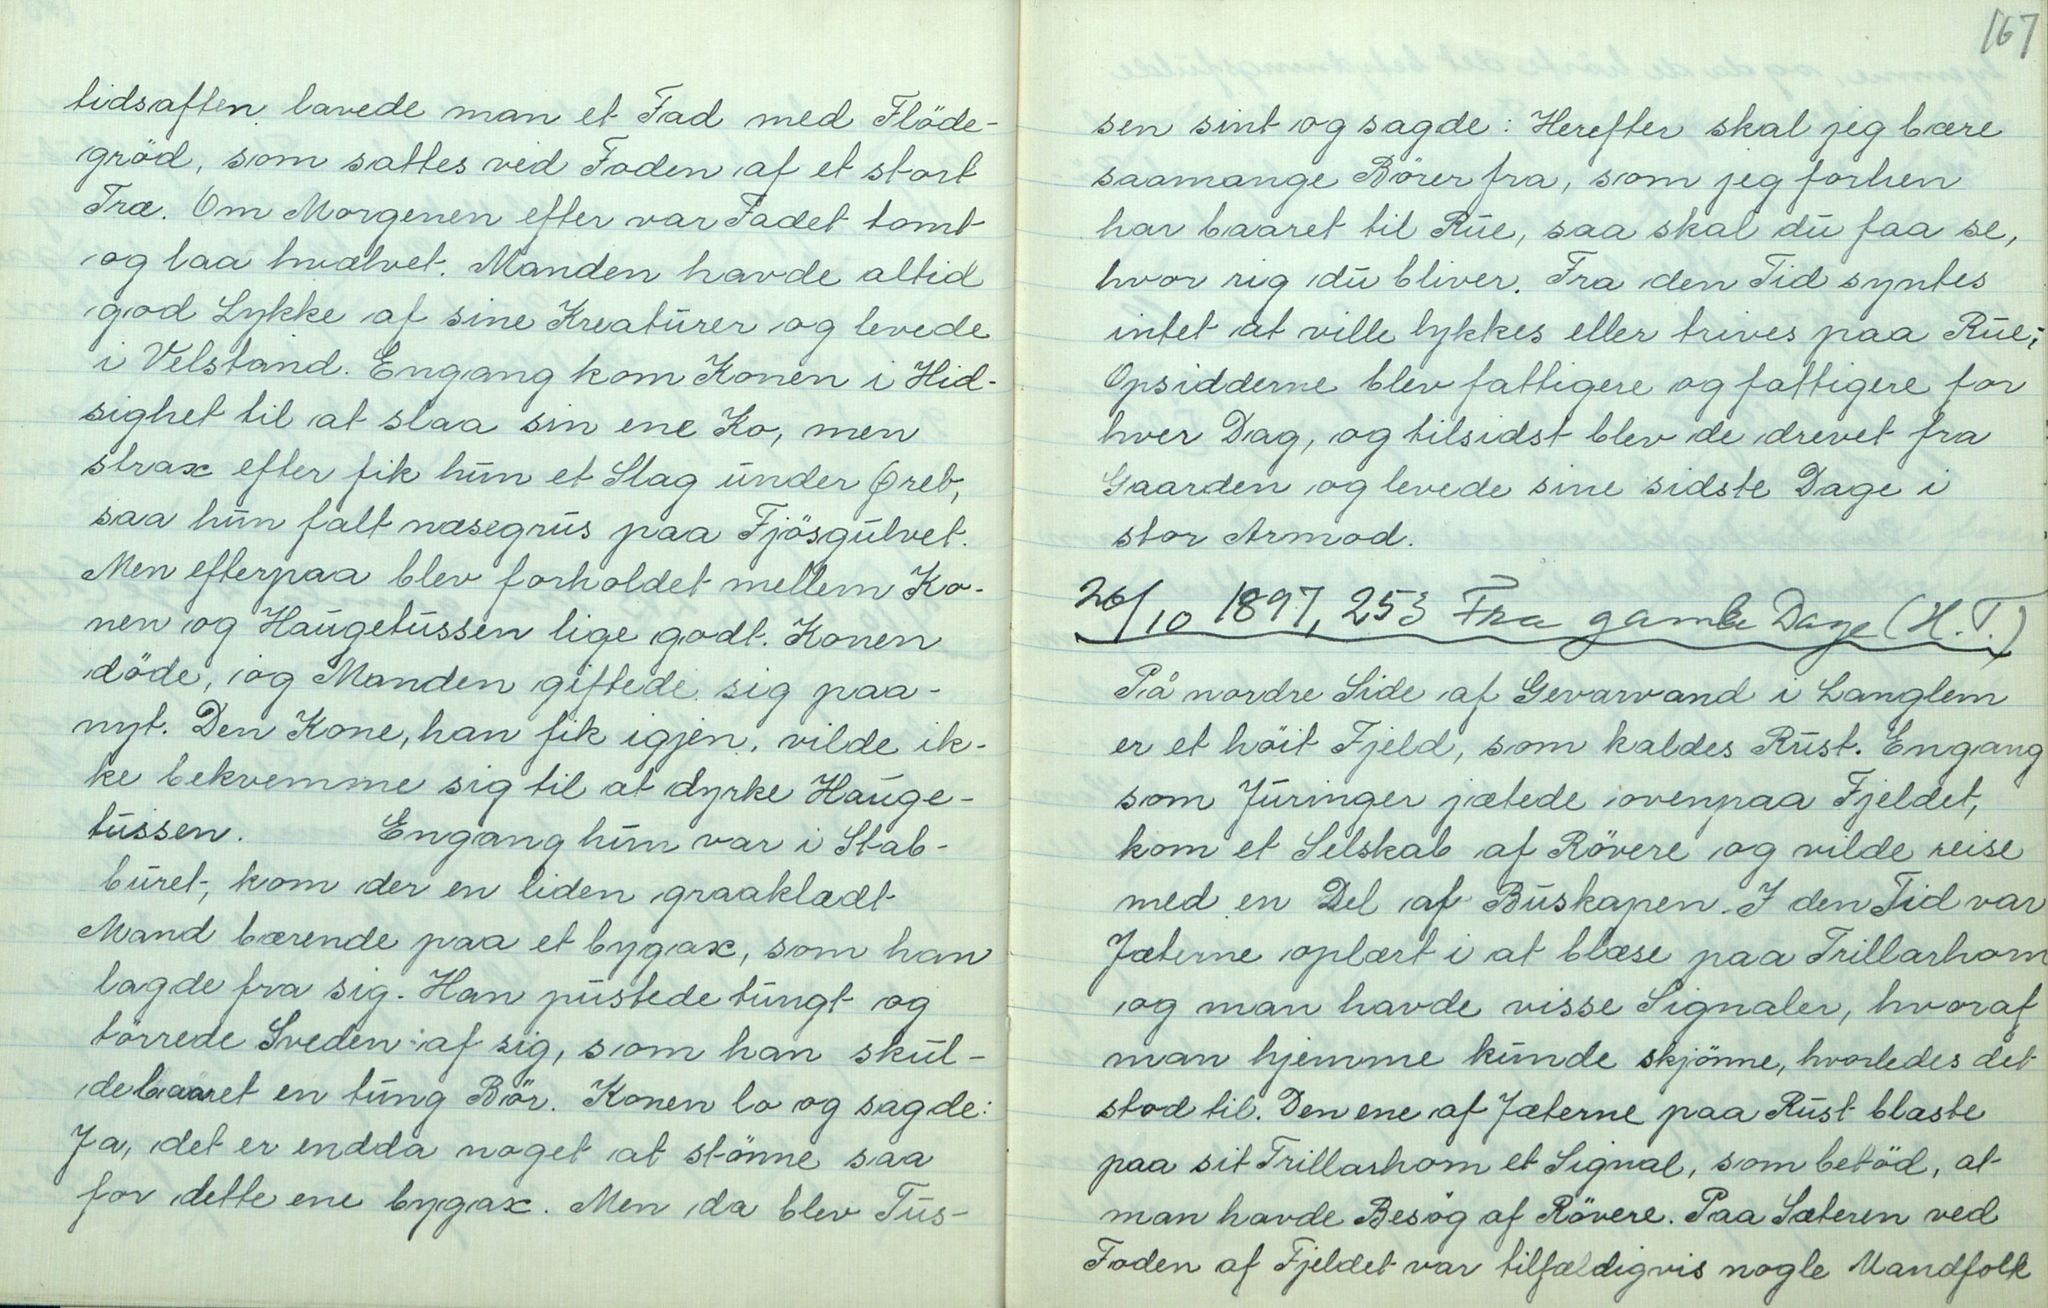 tidsaften lavede man et Fad med Flöde-
gröd, som sattes ved Foden af et stort
Træ. Om Morgenen efter var Fadet tomt
og laa hvælvet. Manden havde altid
god Lykke af sine Kreaturer og levede
i Velstand. Engang kom Konen i Hid-
sighet til at slaa sin ene Ko, men
strax efter fik hun et Slag under Øret,
saa hun falt næsegrus paa Fjösgulvet.
Men efterpaa blev forholdet mellem Ko-
nen og Haugetussen lige godt. Konen
döde, og Manden giftede sig paa-
nyt. Den Kone, han fik igjen, vilde ik-
ke bekvemme sig til at dyrke Hauge-
tussen. Engang hun var i Stab-
buret, kom der en liden graaklædt
Mand bærende paa et bygax, som han
lagde fra sig. Han pustede tungt og
törrede Sveden af sig, som han skul-
de baaret en tung Bör. Konen lo og sagde:
Ja, det er endda noget at stönne saa
for dette ene bygax. Men da blev Tus-
167
sen sint og sagde: Herefter skal jeg bære
saamange Börer fra, som jeg forhen
har baaret til Rue, saa skal du faa se,
hvor rig du bliver. Fra den Tid syntes
intet at ville lykkes eller trives paa Rue;
Opsidderne blev fattigere og fattigere for
hver Dag, og tilsidst blev de drevet fra
Gaarden og levede sine sidste Dage i
stor Armod.
26/10 1897, 253 Fra gamle Dage (H.T.)
På nordre Side af Gevarvand i Langlem
er et höit Fjeld, som kaldes Rust. Engang
som Juringer jætede ovenpaa Fjeldet,
kom et Selskab af Rövere og vilde reise
med en Del af Buskapen. I den Tid var
Jæterne oplært i at blæse paa Trillarhorn
og man havde visse Signaler, hvoraf
man hjemme kunde skjönne, hvorledes det
stod til. Den ene af Jæterne paa Rust blæste
paa sit Trillarhorn et Signal, som betöd, at
man havde Besög af Rövere. Paa Sæteren ved
Foden af Fjeldet var tilfældigvis nogle Mandfolk